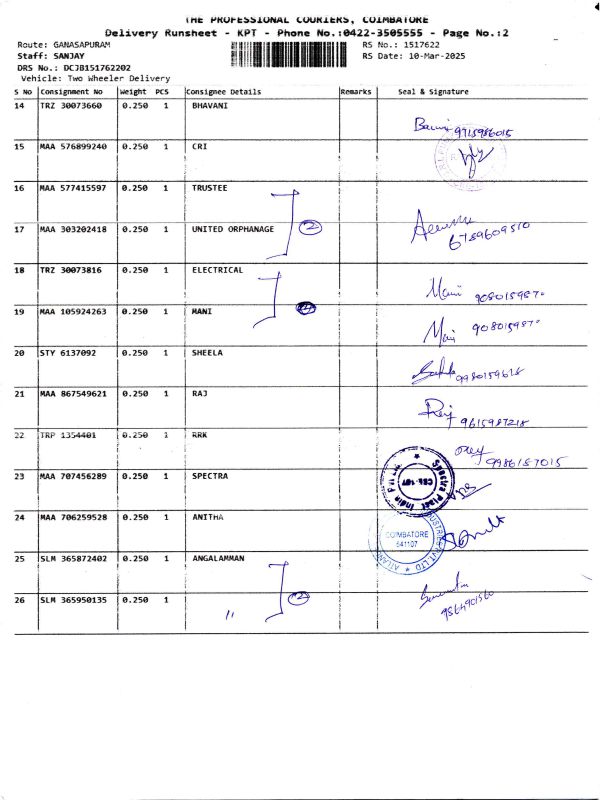 THE PROFESSIONAL COURIERS, COIMBATORE
Delivery Runsheet - KPT - Phone No.:0422-3505555 - Page No.:2
Route: GANASAPURAM RS No.: 1517622
Staff: SANJAY RS Date: 10-Mar-2025
DRS No.: DCJB151762202
Vehicle: Two Wheeler Delivery
S No Consignment No Weight PCS Consignee Details Remarks Seal & Signature
14 TRZ 30073660 0.250 1 BHAVANI
9715986015
15 MAA 576899240 0.250 1 CRI
16 MAA 577415597 0.250 1 TRUSTEE
17 MAA 303202418 0.250 1 UNITED ORPHANAGE 2
6789609510
18 TRZ 30073816 0.250 1 ELECTRICAL
Mani
19 MAA 105924263 0.250 1 MANI
Mani
20 STY 6137092 0.250 1 SHEELA
21 MAA 867549621 0.250 1 RAJ
Raj 9615987218
22 TRP 1354401 0.250 1 RRK
9986157015
23 MAA 707456289 0.250 1 SPECTRA
Spectra Plast India P
CBE-107
24 MAA 706259528 0.250 1 ANITHA
COIMBATORE
641107
25 SLM 365872402 0.250 1 ANGALAMMAN
2
26 SLM 365950135 0.250 1 "